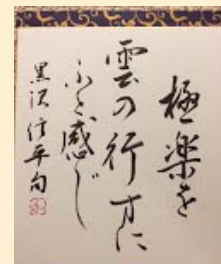 極楽を
雲の行方に
ふと感じ
黒沢信平句